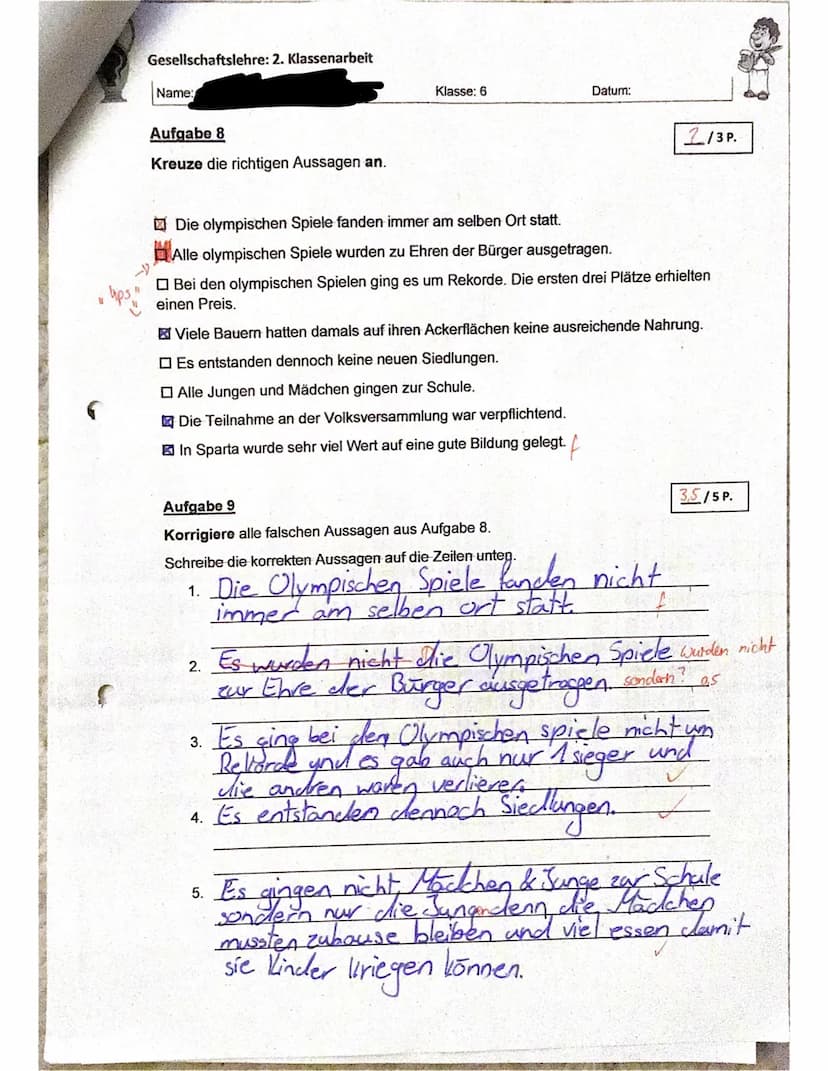 Gesellschaftslehre: 2. Klassenarbeit
Name: Klasse: 6 Datum:
Aufgabe 8
/3 P.
Kreuze die richtigen Aussagen an.
Die olympischen Spiele fanden immer am selben Ort statt.
Alle olympischen Spiele wurden zu Ehren der Bürger ausgetragen.
Bei den olympischen Spielen ging es um Rekorde. Die ersten drei Plätze erhielten
"Ups"
einen Preis.
Viele Bauern hatten damals auf ihren Ackerflächen keine ausreichende Nahrung.
Es entstanden dennoch keine neuen Siedlungen.
Alle Jungen und Mädchen gingen zur Schule.
Die Teilnahme an der Volksversammlung war verpflichtend.
In Sparta wurde sehr viel Wert auf eine gute Bildung gelegt. f
Aufgabe 9
3,5/5 P.
Korrigiere alle falschen Aussagen aus Aufgabe 8.
Schreibe die korrekten Aussagen auf die Zeilen unten.
1. Die Olympischen Spiele fanden nicht
immer am selben ort statt. f
2. Es wurden nicht die Olympischen Spiele wurden nicht
zur Ehre der Bürger ausgetragen. sondern? 0,5
3. Es ging bei den Olympischen spiele nicht um
Rekorde und es gab auch nur 1 sieger und
die andren waren verlierer.
4. Es entstanden dennoch Siedlungen.
5. Es gingen nicht Mädchen & Junge zur Schule
sondern nur die Jungen denn die Mädchen
mussten zuhause bleiben und viel essen damit
sie Kinder kriegen können.